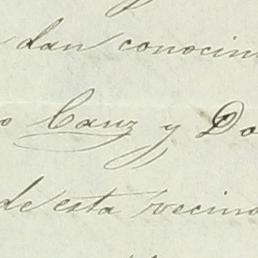 dan conocim
o Cauz y Do
de esta vecino